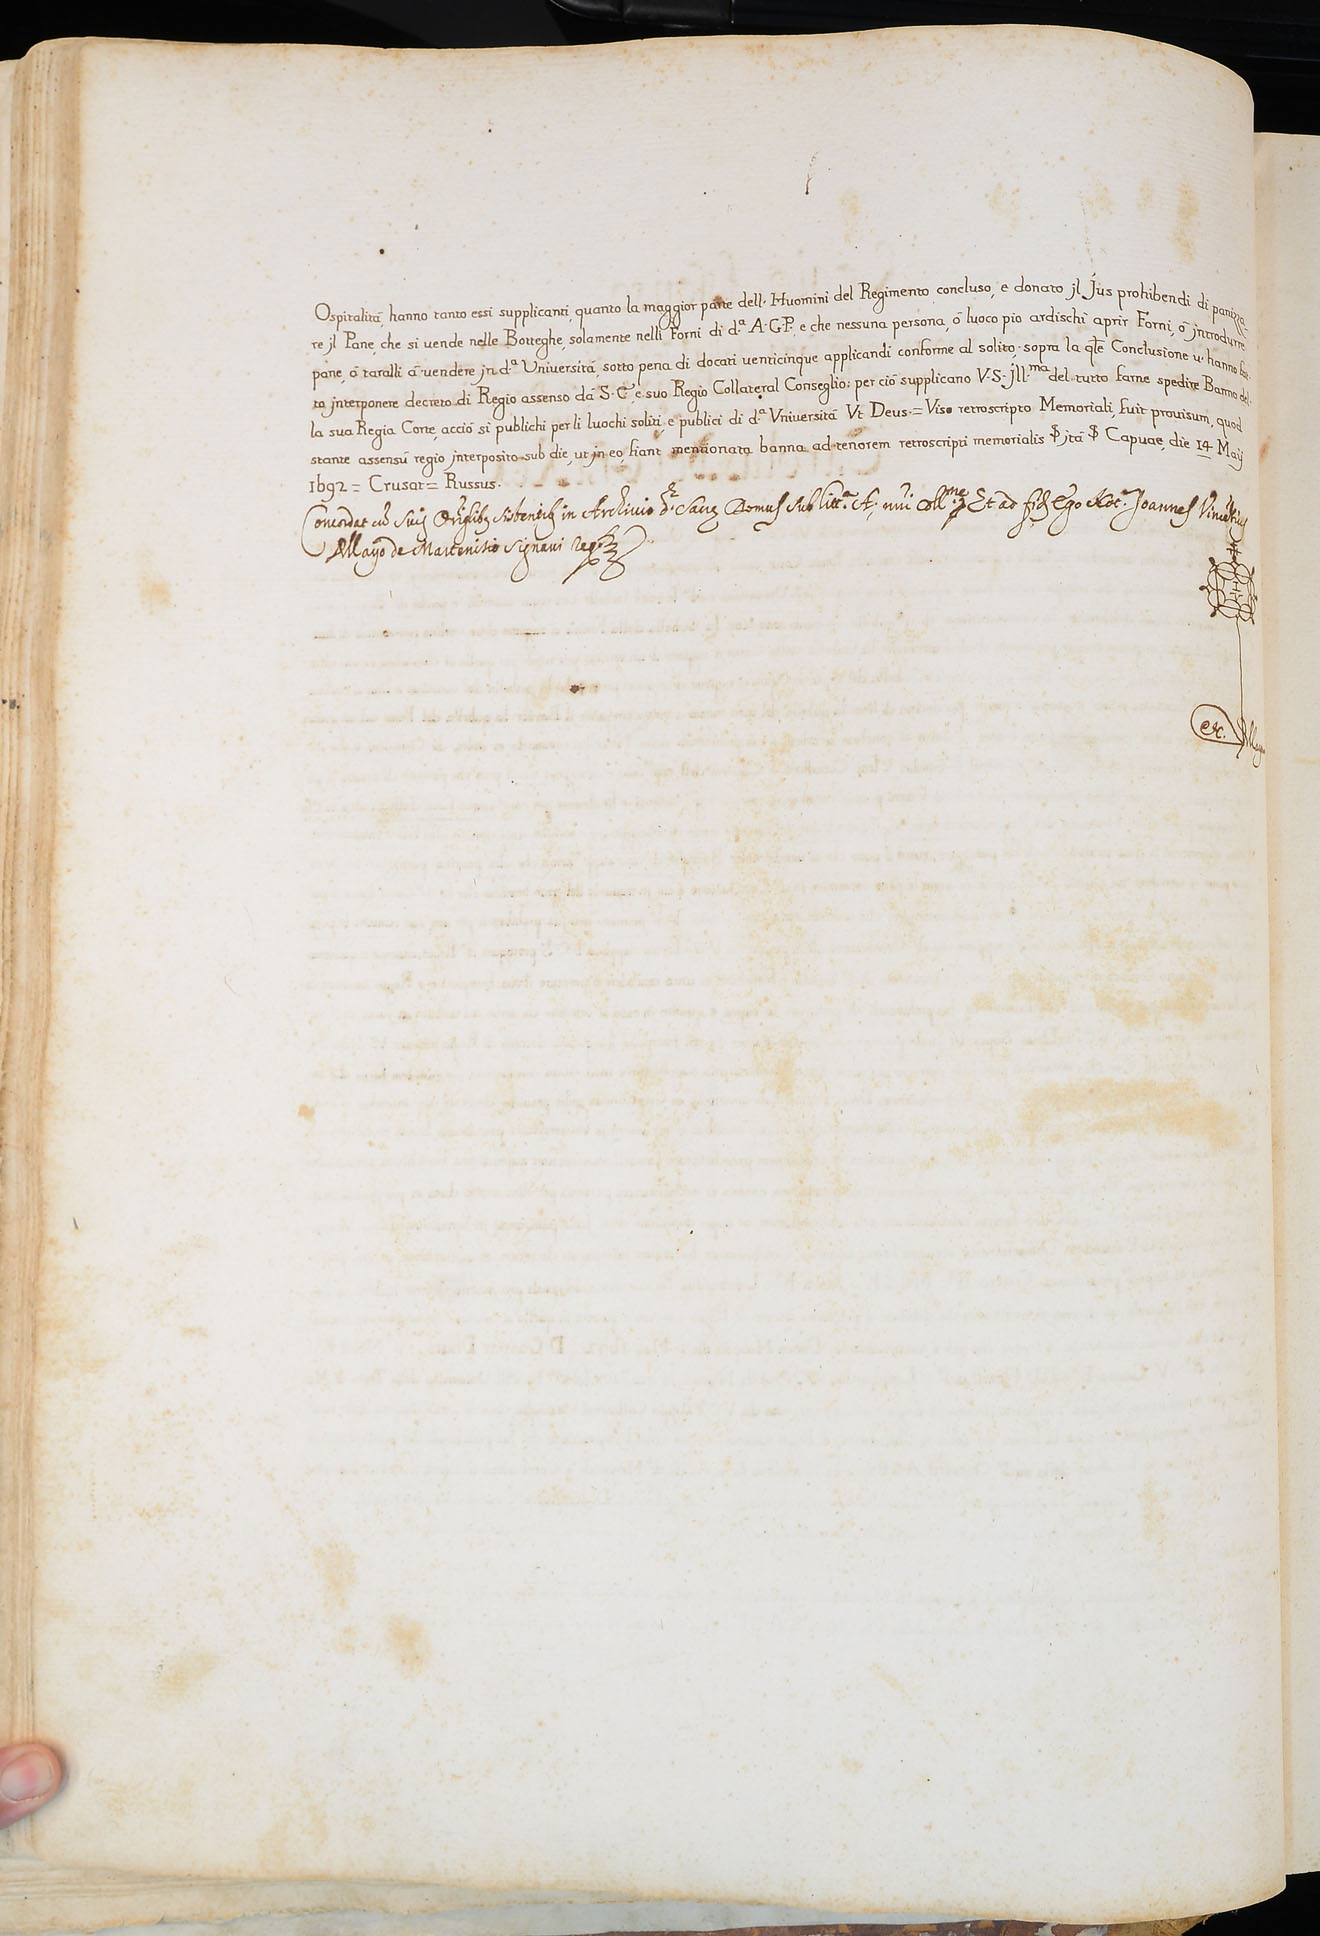 Ospitalità, hanno tanto essi supplicanti, quanto la maggior parte dell' Huomini del Regimento concluso, e donato jl Jus prohibendi di panizza-
re jl Pane, che si vende nelle Botteghe, solamente nelli Forni di d.ª A.G.P., e che nessuna persona, ò luoco pio ardischi aprir Forni, ò jntrodurre
pane, ò taralli à vendere jn d.ª Università, sotto pena di docati venticinque applicandi conforme al solito, sopra la qle Conclusione v' hanno fat-
to jnterponere decreto di Regio assenso dà S. C., e suo Regio Collateral Conseglio; per ciò supplicano V.S. jll.ma del tutto farne spedire Banno del-
la sua Regia Corte, acciò si publichi per li luochi soliti, e publici di d.ª Vniversità Vt Deus. = Viso retroscripto Memoriali, fuit prouisum, quod
stante assensu regio jnterposito sub die, ut jn eo, fiant mentionata banna ad tenorem retroscripti memorialis jtà Capuae, die 14 Maÿ
1692 = Crusat = Russus.
Concordat cū suis Origlibus sistentib in Archivio Domus sub litt.ª A, Et ad fid Ego Not.s Joannes Vincentius
Allayo de Marcenisio signavi
etc. Allayo